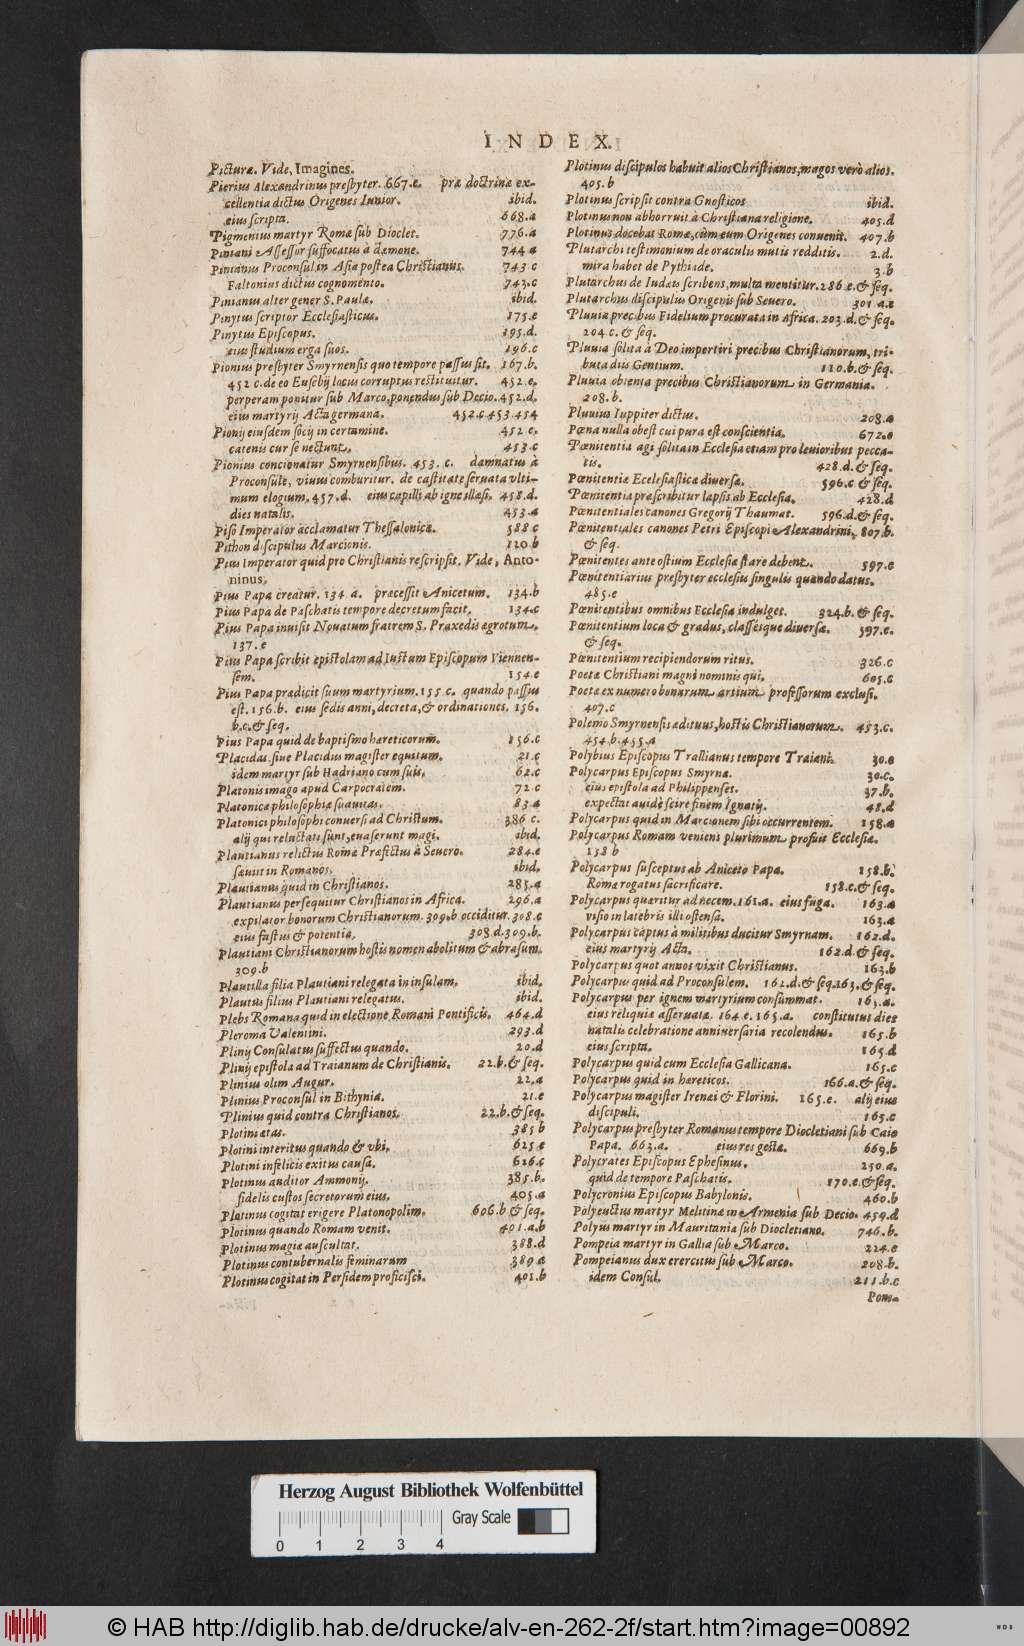 INDEX.
Picturæ. Vide, Imagines.
Pierius Alexandrinus presbyter. 667.e. præ doctrinæ ex-
cellentia dictus Origenes Iunior. ibid.
eius scripta. 668.a
Pigmenius martyr Romæ sub Dioclet. 776.a
Piniani Assessor suffocatus à dæmone. 744 a
Pinianus Proconsul in Asia postea Christianus. 743 c
Faltonius dictus cognomento. 743.c
Pinianus alter gener S. Paulæ. ibid.
Pinytus scriptor Ecclesiasticus. 175.e
Pinytus Episcopus. 195.d.
eius studium erga suos. 196.c
Pionius presbyter Smyrnensis quo tempore passus sit. 167.b.
452 c. de eo Eusebij locus corruptus restituitur. 452.e.
perperam ponitur sub Marco, ponendus sub Decio. 452.d.
eius martyrij Acta germana. 452.c 453.454
Pionij eiusdem socij in certamine. 452.e.
catenis cur se nectunt. 453.c
Pionius concionatur Smyrnensibus. 453. c. damnatus à
Proconsule, viuus comburitur. de castitate seruata vlti-
mum elogium. 457.d. eius capilli ab igne illæsi. 458.d.
dies natalis. 453.a
Piso Imperator acclamatur Thessalonicæ. 588 c
Pithon discipulus Marcionis. 120.b
Pius Imperator quid pro Christianis rescripsit. Vide, Anto-
ninus.
Pius Papa creatur. 134. a. præcessit Anicetum. 134.b
Pius Papa de Paschatis tempore decretum facit. 134.c
Pius Papa inuisit Nouatum fratrem S. Praxedis ægrotum.
137.e
Pius Papa scribit epistolam ad Iustum Episcopum Viennen-
sem. 154.e
Pius Papa prædicit suum martyrium. 155.c. quando passus
est. 156.b. eius sedis anni, decreta, & ordinationes. 156.
b.c. & seq.
Pius Papa quid de baptismo hæreticorum. 156.c
Placidas siue Placidus magister equitum. 21.c
idem martyr sub Hadriano cum suis. 62.c
Platonis imago apud Carpocratem. 72.c
Platonicæ philosophiæ suauitas. 83.a
Platonici philosophi conuersi ad Christum. 386 c.
alij qui reluctati sunt, euaserunt magi. ibid.
Plautianus relictus Romæ Præfectus à Seuero. 284.e
sæuit in Romanos. ibid.
Plautianus quid in Christianos. 285.a
Plautianus persequitur Christianos in Africa. 296.a
expilator bonorum Christianorum. 309.b occiditur. 308.c
eius fastus & potentia. 308.d.309.b.
Plautiani Christianorum hostis nomen abolitum & abrasum.
309.b
Plautilla filia Plautiani relegata in insulam. ibid.
Plautus filius Plautiani relegatus. ibid.
Plebs Romana quid in electione Romani Pontificis. 464.d
Pleroma Valentini. 293.d
Plinij Consulatus suffectus quando. 20.d
Plinij epistola ad Traianum de Christianis. 22.b. & seq.
Plinius olim Augur. 22.a
Plinius Proconsul in Bithynia. 21.e
Plinius quid contra Christianos. 22.b. & seq.
Plotini ætas. 385 b
Plotini interitus quando & vbi. 625.e
Plotini infelicis exitus causa. 626.c
Plotinus auditor Ammonij. 385.b.
fidelis custos secretorum eius. 405.a
Plotinus cogitat erigere Platonopolim. 606.b & seq.
Plotinus quando Romam venit. 401.a.b
Plotinus magiæ auscultat. 388.d
Plotinus contubernalis feminarum 389 a
Plotinus cogitat in Persidem proficisci. 401.b
Plotinus discipulos habuit alios Christianos, magos verò alios.
405.b
Plotinus scripsit contra Gnosticos ibid.
Plotinus non abhorruit à Christiana religione. 405.d
Plotinus docebat Romæ, cùm eum Origenes conuenit. 407.b
Plutarchi testimonium de oraculis mutis redditis. 2.d.
mira habet de Pythiade. 3.b
Plutarchus de Iudæis scribens, multa mentitur. 286 e. & seq.
Plutarchus discipulus Origenis sub Seuero. 301 a.e
Pluuia precibus Fidelium procurata in Africa. 203.d. & seq.
204 c. & seq.
Pluuia solita à Deo impertiri precibus Christianorum, tri-
buta diis Gentium. 210.b. & seq.
Pluuia obtenta precibus Christianorum in Germania.
208.b.
Pluuius Iuppiter dictus. 208.a
Pœna nulla obest cui pura est conscientia. 672.e
Pœnitentia agi solita in Ecclesia etiam pro leuioribus pecca-
tis. 428.d. & seq.
Pœnitentiæ Ecclesiasticæ diuersæ. 596.c & seq.
Pœnitentia præscribitur lapsis ab Ecclesia. 428.d
Pœnitentiales canones Gregorij Thaumat. 596.d. & seq.
Pœnitentiales canones Petri Episcopi Alexandrini. 807.b.
& seq.
Pœnitentes ante ostium Ecclesiæ stare debent. 597.e
Pœnitentiarius presbyter ecclesiis singulis quando datus.
485.e
Pœnitentibus omnibus Ecclesia indulget. 324.b. & seq.
Pœnitentium loca & gradus, classésque diuersæ. 597.c.
& seq.
Pœnitentium recipiendorum ritus. 326.c
Poetæ Christiani magni nominis qui. 605.c
Poetæ ex numero bonarum artium professorum exclusi.
407.c
Polemo Smyrnensis ædituus, hostis Christianorum. 453.c.
454.b.455.a
Polybius Episcopus Trallianus tempore Traiani. 30.e
Polycarpus Episcopus Smyrnæ. 30.c.
eius epistola ad Philippenses. 37.b.
expectat auidè scire finem Ignatij. 48.d
Polycarpus quid in Marcionem sibi occurrentem. 158.a
Polycarpus Romam veniens plurimum profuit Ecclesiæ.
158 b
Polycarpus susceptus ab Aniceto Papa. 158.b.
Romæ rogatus sacrificare. 158.c. & seq.
Polycarpus quæritur ad necem. 161.a. eius fuga. 163.a
visio in latebris illi ostensa. 163.a
Polycarpus captus à militibus ducitur Smyrnam. 162.d.
eius martyrij Acta. 162.d. & seq.
Polycarpus quot annos vixit Christianus. 163.b
Polycarpus quid ad Proconsulem. 162.d. & seq. 163. & seq.
Polycarpus per ignem martyrium consummat. 163.a.
eius reliquiæ asseruatæ. 164.e. 165.a. constitutus dies
natalis celebratione anniuersaria recolendus. 165.b
eius scripta. 165.d
Polycarpus quid cum Ecclesia Gallicana. 165.c
Polycarpus quid in hæreticos. 166.a. & seq.
Polycarpus magister Irenæi & Florini. 165.e. alij eius
discipuli. 165.c
Polycarpus presbyter Romanus tempore Diocletiani sub Caio
Papa. 663.a. eius res gestæ. 669.b
Polycrates Episcopus Ephesinus. 250.a.
quid de tempore Paschatis. 170.e. & seq.
Polycronius Episcopus Babylonis. 460.b
Polyeuctus martyr Melitinæ in Armenia sub Decio. 459.d
Polyus martyr in Mauritania sub Diocletiano. 746.b.
Pompeia martyr in Gallia sub Marco. 224.e
Pompeianus dux exercitus sub Marco. 208.b.
idem Consul. 211.b.c
Pom-
Herzog August Bibliothek Wolfenbüttel
Gray Scale
0 1 2 3 4
© HAB http://diglib.hab.de/drucke/alv-en-262-2f/start.htm?image=00892